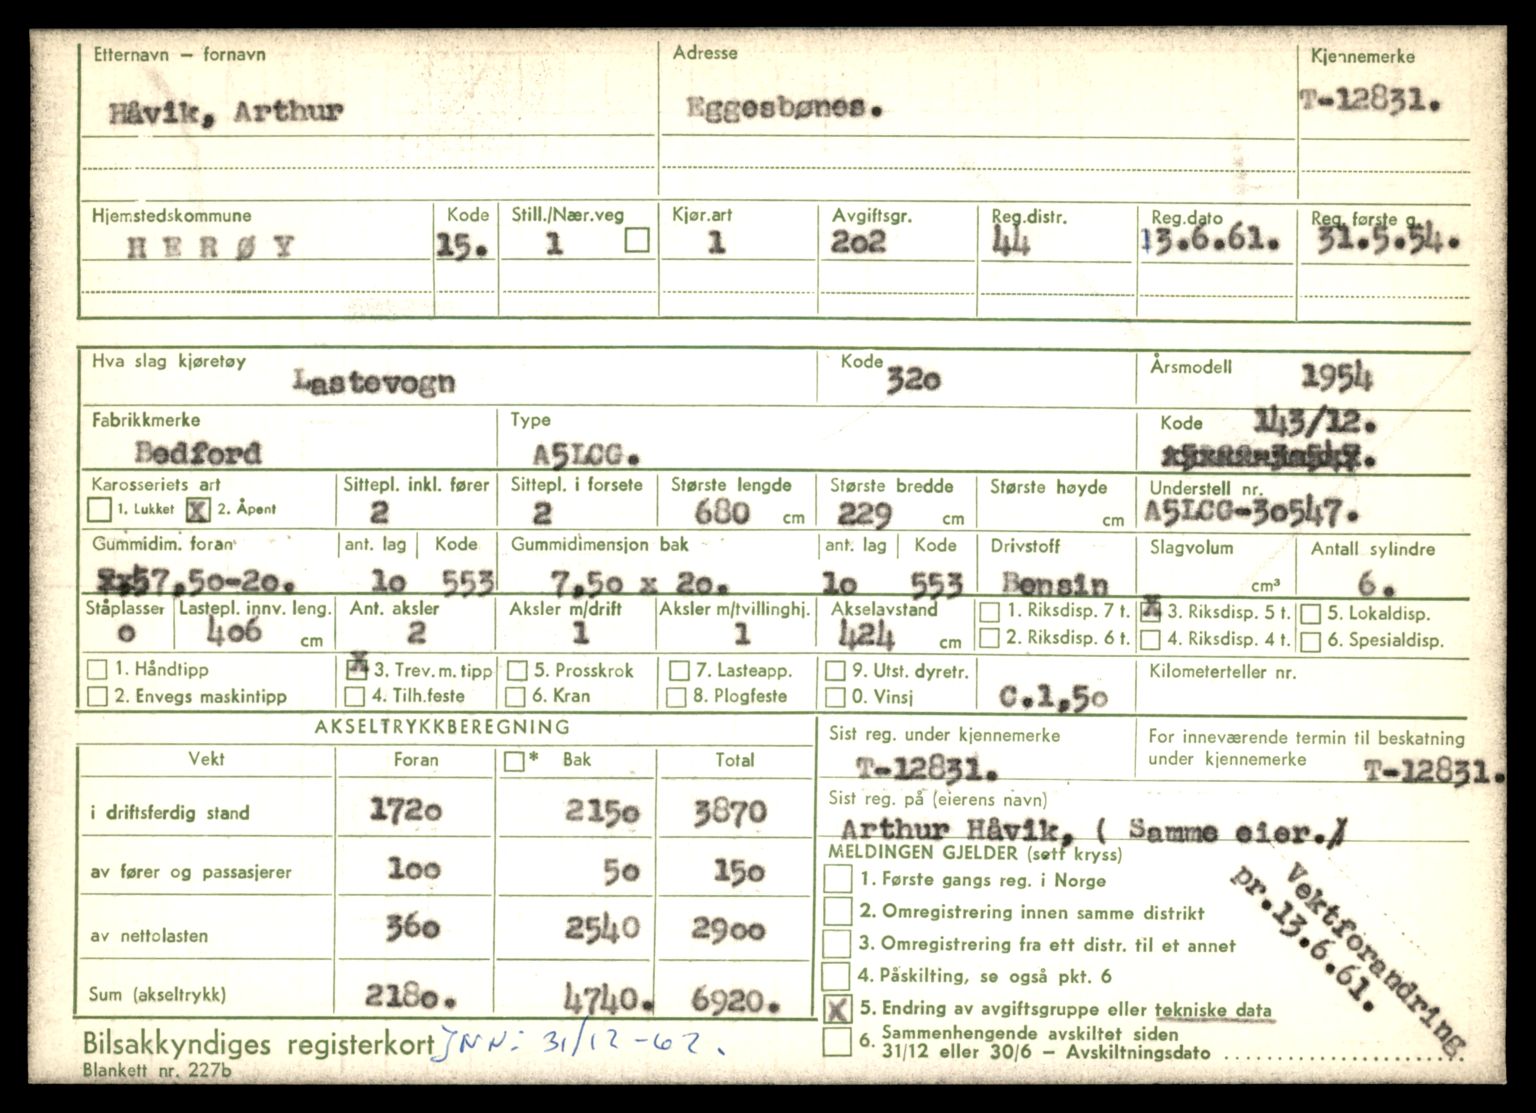 Etternavn – fornavn Adresse Kjennemerke
Håvik, Arthur Eggesbønes. T-12831.
Hjemstedskommune Kode Still./Nær.veg Kjør.art Avgiftsgr. Reg.distr. Reg.dato Reg. første g.
HERØY 15. 1 1 202 44 13.6.61. 31.5.54.
Hva slag kjøretøy Kode Årsmodell
Lastevogn 320 1954
Fabrikkmerke Type Kode 143/12.
Bedford A5LCG.
Karosseriets art Sittepl. inkl. fører Sittepl. i forsete Største lengde Største bredde Største høyde Understell nr.
1. Lukket X 2. Åpent 2 2 680 cm 229 cm cm A5LCG-30547.
Gummidim. foran ant. lag Kode Gummidimensjon bak ant. lag Kode Drivstoff Slagvolum Antall sylindre
7,50-20. 10 553 7,50 x 20. 10 553 Bensin cm³ 6.
Ståplasser Lastepl. innv. leng. Ant. aksler Aksler m/drift Aksler m/tvillinghj. Akselavstand 1. Riksdisp. 7 t. X 3. Riksdisp. 5 t. 5. Lokaldisp.
0 406 cm 2 1 1 424 cm 2. Riksdisp. 6 t. 4. Riksdisp. 4 t. 6. Spesialdisp.
1. Håndtipp X 3. Trev.m.tipp 5. Prosskrok 7. Lasteapp. 9. Utst. dyretr. Kilometerteller nr.
2. Envegs maskintipp 4. Tilh.feste 6. Kran 8. Plogfeste 0. Vinsj C.1,50
AKSELTRYKKBEREGNING
Vekt Foran * Bak Total
i driftsferdig stand 1720 2150 3870
av fører og passasjerer 100 50 150
av nettolasten 360 2540 2900
Sum (akseltrykk) 2180. 4740. 6920.
Sist reg. under kjennemerke For inneværende termin til beskatning
under kjennemerke
T-12831. T-12831.
Sist reg. på (eierens navn)
Arthur Håvik, ( Samme eier.)
MELDINGEN GJELDER (sett kryss)
1. Første gangs reg. i Norge
2. Omregistrering innen samme distrikt
3. Omregistrering fra ett distr. til et annet
4. Påskilting, se også pkt. 6
X 5. Endring av avgiftsgruppe eller tekniske data
6. Sammenhengende avskiltet siden
31/12 eller 30/6 – Avskiltningsdato
Vektforandring
pr.13.6.61.
Bilsakkyndiges registerkort JNN: 31/12-62.
Blankett nr. 227b